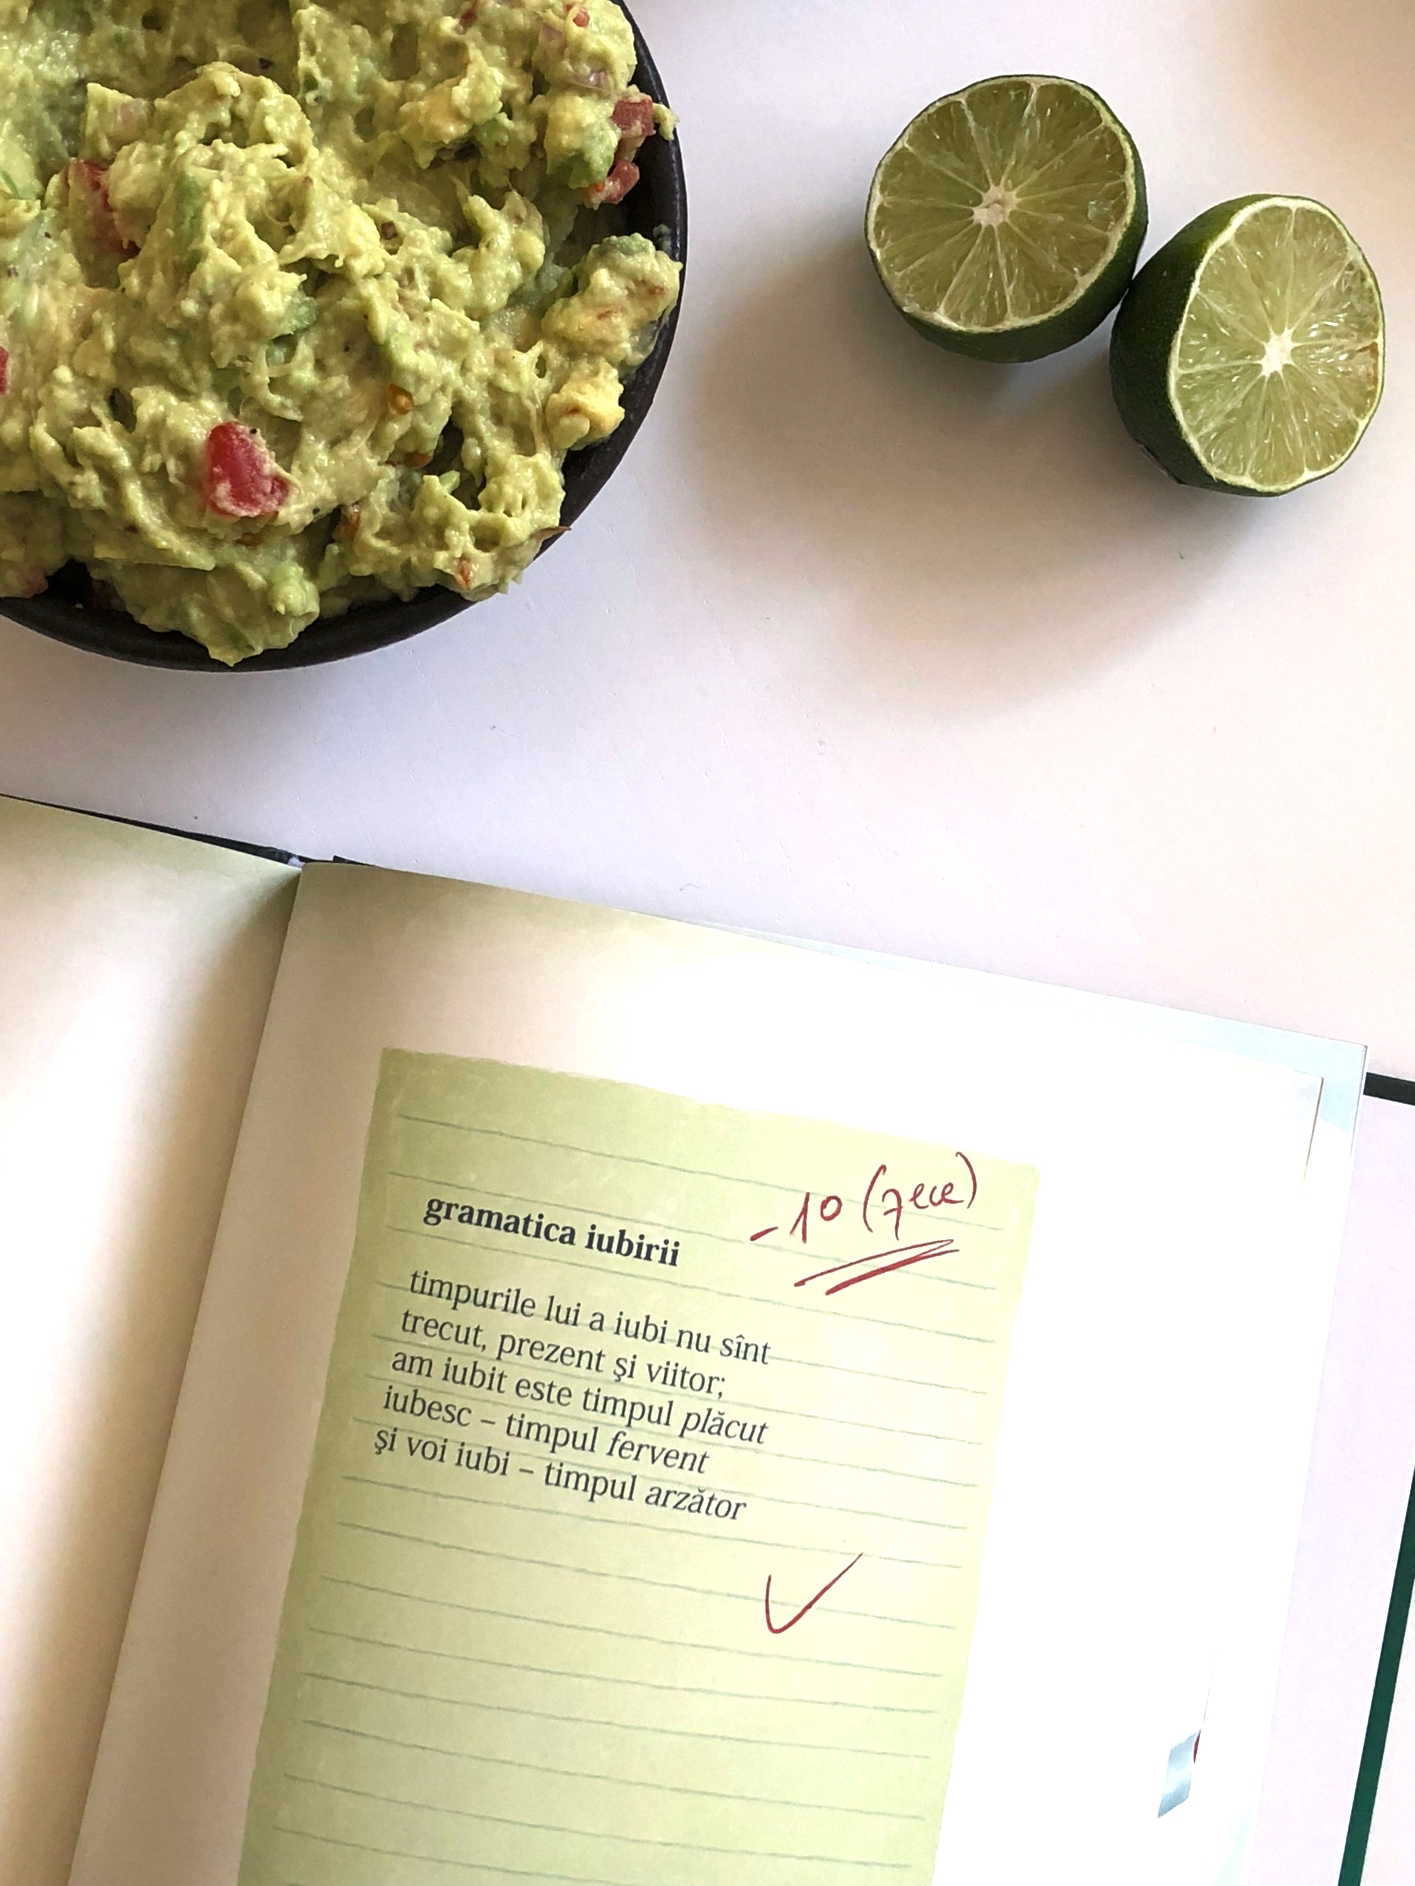 gramatica iubirii
- 10 (zece)
timpurile lui a iubi nu sînt
trecut, prezent şi viitor;
am iubit este timpul plăcut
iubesc – timpul fervent
şi voi iubi – timpul arzător